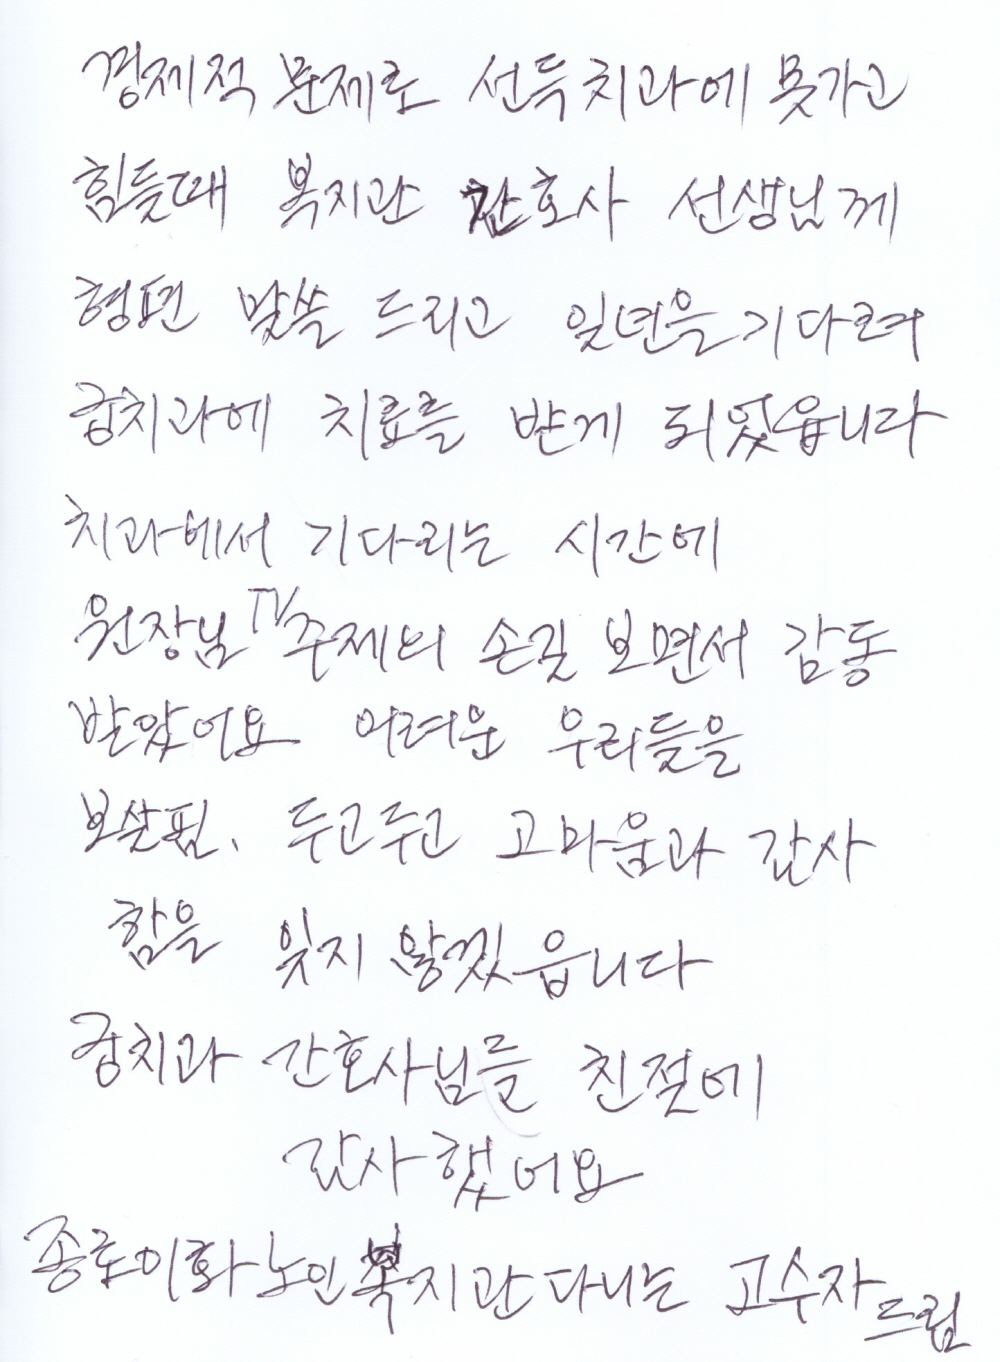 경제적 문제로 선득 치과에 못가고
힘들때 복지관 간호사 선생님께
형편 말쓸 드리고 잊년을 기다려
굼치과에 치료를 받게 되었읍니다
치과에서 기다리는 시간에
원장님 TV 주제의 손길 보면서 감동
받았어요 어려운 우리들을
보살핌. 두고두고 고마움과 감사
함을 잊지 않겠읍니다
굼치과 간호사님들 친절에
감사했어요
종로이화노인복지관 다니는 고수자 드림